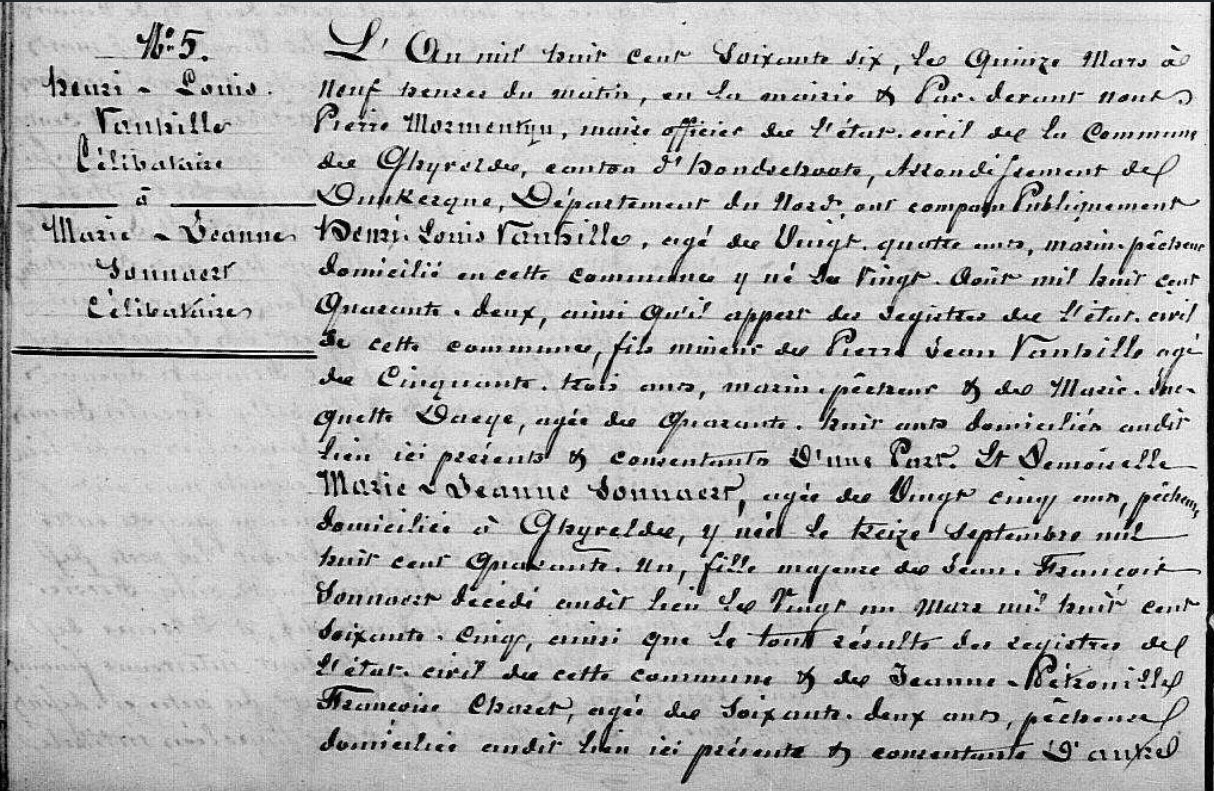 N° 5.
henri - Louis.
Vanhille
Célibataire
à
Marie - Jeanne
Sonnaert
Célibataire
L'An mil huit cent Soixante six, Le Quinze Mars à
Neuf heures du matin, en la mairie & Par-devant nous
Pierre Mormentyn, maire officier de l'état-civil de la Commune
de Ghyvelde, canton d'hondschoote, Arrondissement de
Dunkerque, Département du Nord, ont comparu Publiquement
Henri-Louis Vanhille, agé de Vingt-quatre ans, marin-pêcheur
domicilié en cette commune y né Le Vingt-Août mil huit cent
Quarante-deux, ainsi Qu'il appert des registres de l'état-civil
de cette commune, fils mineur de Pierre Jean Vanhille agé
de Cinquante-trois ans, marin-pêcheur & de Marie-Jac-
quette Daeye, agée de Quarante-huit ans domiciliés audit
lieu ici présents & consentants D'une Part. Et Demoiselle
Marie-Jeanne Sonnaert, agée de Vingt cinq ans, pêcheuse
domiciliée à Ghyvelde, y née le treize septembre mil
huit cent Quarante-Un, fille majeure de Jean-François
Sonnaert décédé audit lieu Le Vingt un Mars mil huit cent
soixante-Cinq, ainsi que le tout résulte des registres de
l'état-civil de cette commune & de Jeanne-Pétronille
Françoise Charet, agée de Soixante-deux ans, pêcheuse
domiciliée audit lieu ici présente & consentante D'autre